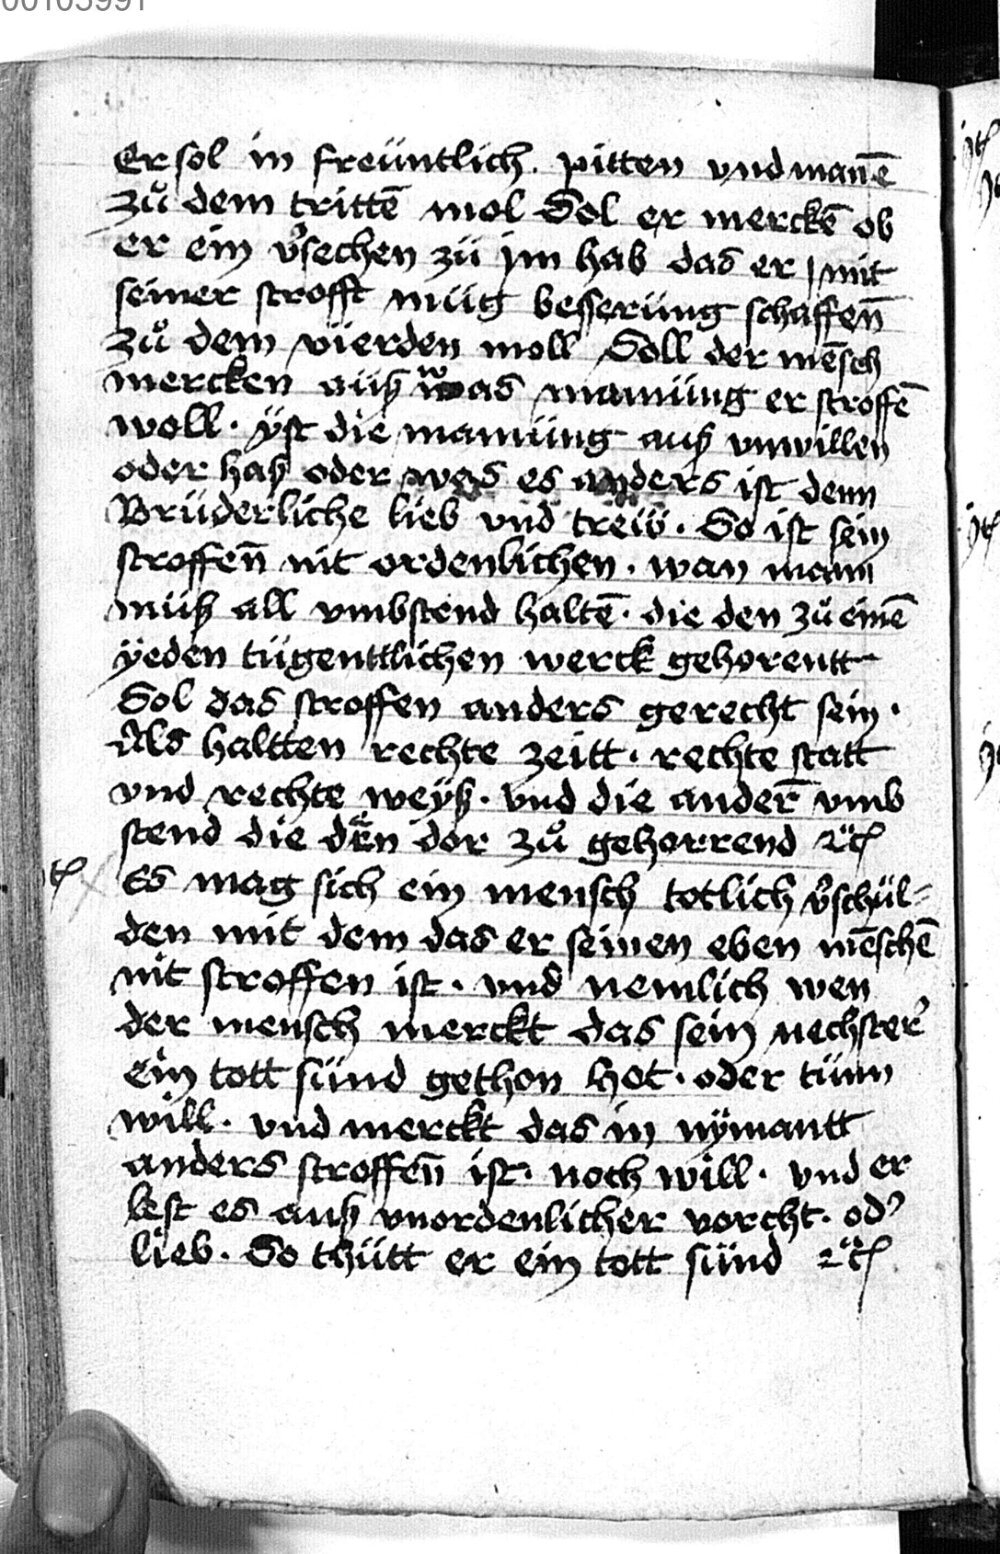 00103991
Er sol in freüntlich. pitten vnd mane̅
zů dem tritte̅ mol Sol er mercke̅ ob
er ein v̓sechen zü im hab das er mit
seiner strofft müg besserüng schaffen̅
zů dem vierden moll Soll der me̅sch
mercken aüß was manüng er stroffe̅
woll. ÿst die manüng auß vnwillen
oder haß oder wes es anders ist denn
Brüderliche lieb vnd treẅ. So ist sein
stroffen̅ nit ordenlichen. wan mann
müß all vmbstend halte̅. die den zů eine̅
ÿeden tügenttlichen werck gehorentt
Sol das stroffen anders gerecht sein.
Als haltten rechte zeitt. rechte statt
vnd rechte weÿß. vnd die ander̅ vmb
stend die den dor zů gehorrend ꝛc̈
Es mag sich ein mensch totlich v̓schül=
den mit dem das er seinen eben me̅sche̅
nit stroffen ist. vnd nemlich wen
der mensch merckt das sein nechster̓
ein tott sünd gethon hot. oder tünn
will. vnd merckt das in nÿmantt
anders stroffen̅ ist. noch will. vnd er
lest es auß vnordenlicher vorcht. od̓
lieb. So thütt er ein tott sünd ꝛc̈